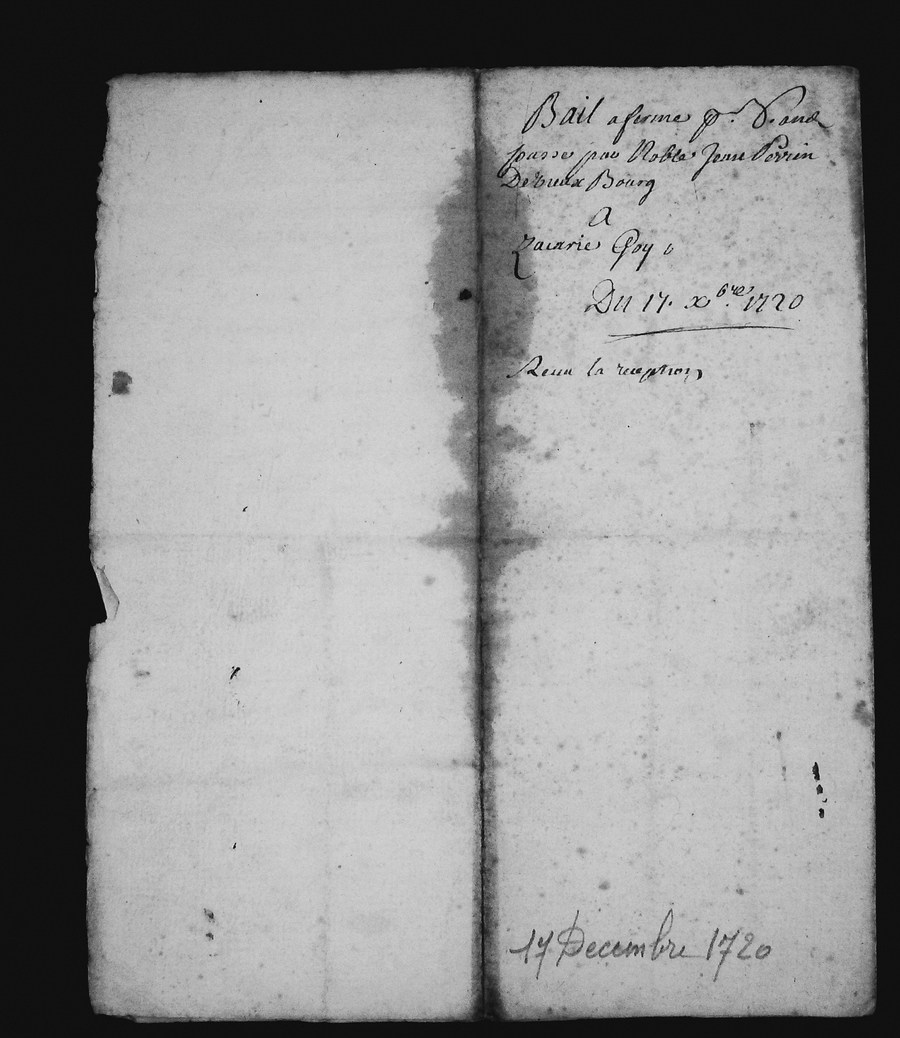 Bail a ferme pr. 
passé par Noble Jean Perrin
De Vieux Bourg
A
Zacarie Goy
Du 17. xbre. 1720
Receu la reception
17 Decembre 1720